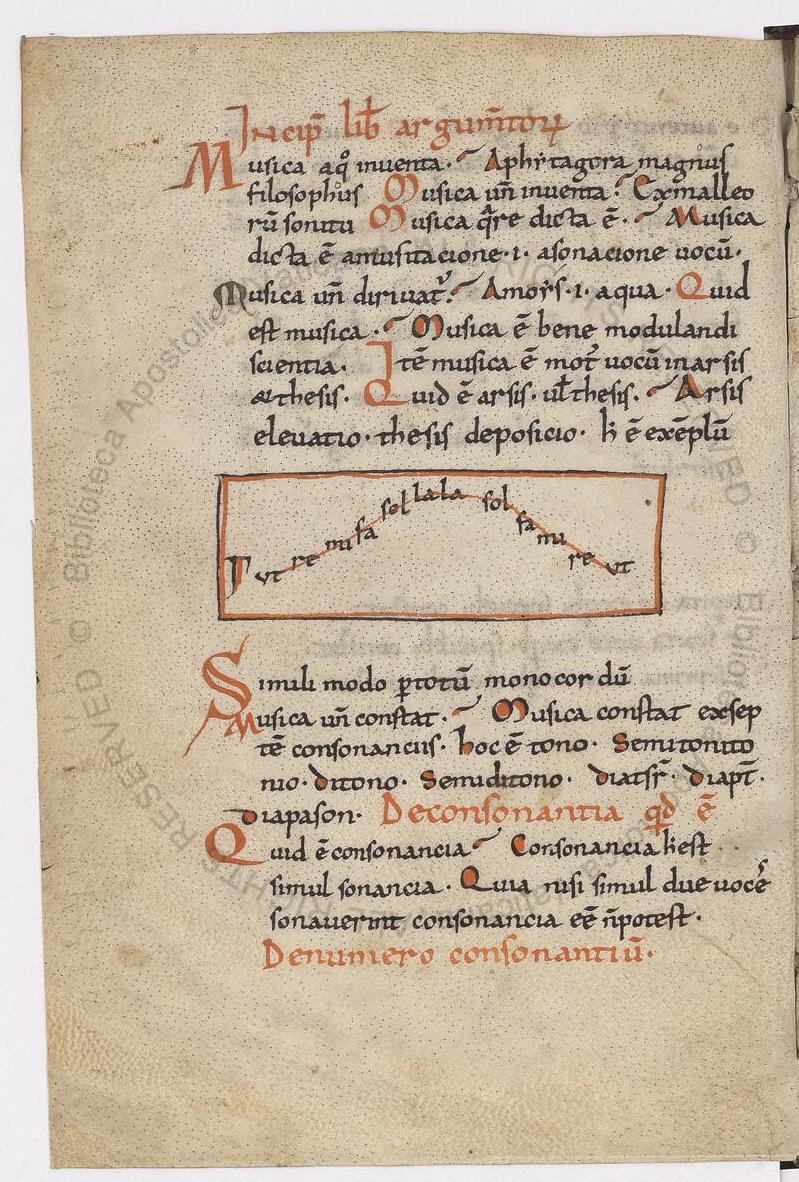 Incip̄ lib̄ argum̄torꝝ
Musica a q̊ inventa. A phytagora magnus
filosophus Musica un̄ inventa? Ex malleo
rū sonitu Musica q̄re dicta ē. Musica
dicta ē amusitacione .i. asonacione uocū.
Musica un̄ dirivat᷑? Amoys .i. aqua. Quid
est musica. Musica ē bene modulandi
scientia. Itē musica ē mot᷑ uocū inarsis
& thesis. Quid ē arsis. ul̄ thesis. Arsis
elevatio. thesis deposicio. h̄ ē exēplū
Γ ut re mi fa sol la la sol fa mi re ut
Simili modo ꝑ totū monocordū
Musica un̄ constat. Musica constat exsep
tē consonanciis. hoc ē tono. Semitonito
nio. ditono. Semiditono. diatsr̄. diapt̄.
diapason. De consonantia qd ē
Quid ē consonancia Consonancia h̄ est
simul sonancia. Quia nisi simul due uoces
sonauerint consonancia eē n̄ potest.
De numero consonantiū.
© Biblioteca Apostolica Vaticana
RIGHTS RESERVED ©